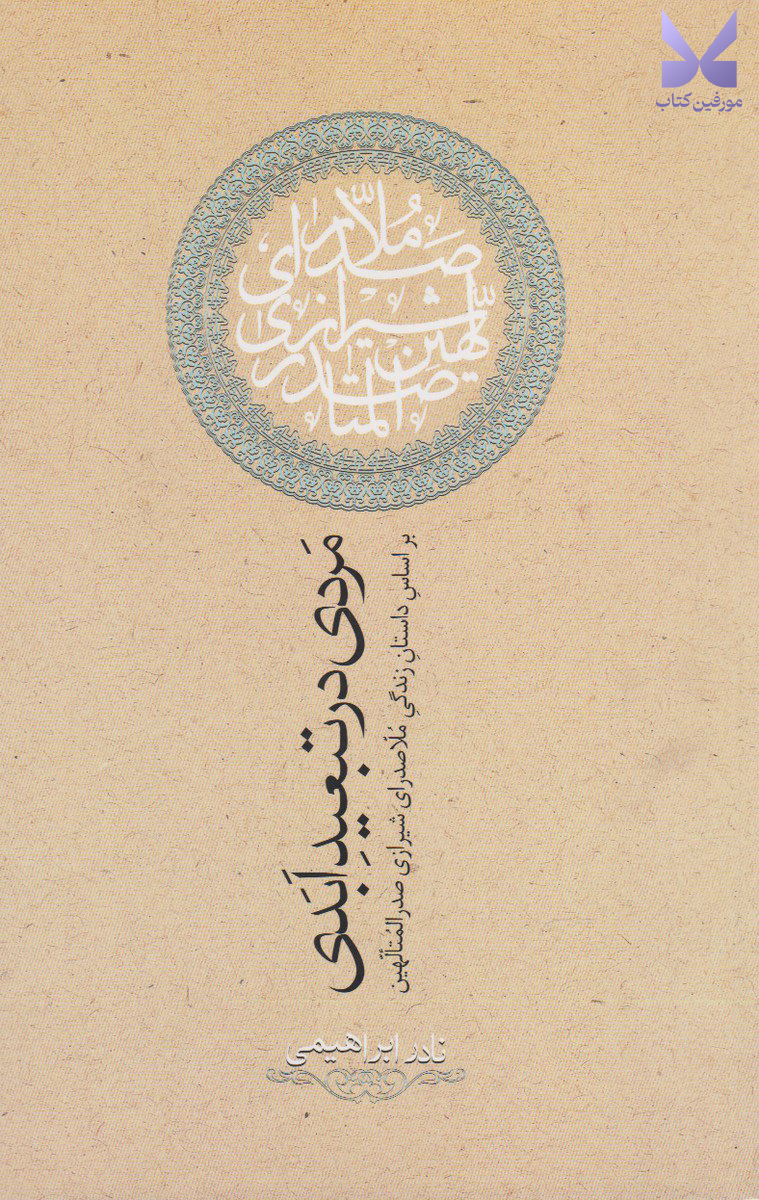 مورفین کتاب
ملّاصدرای
شیرازی
صدرالمتألّهین
مَردی در تبعیدِ اَبَدی
بر اساسِ داستانِ زندگیِ مُلّاصدرای شیرازیِ صدرالمُتألّهین
نادر ابراهیمی